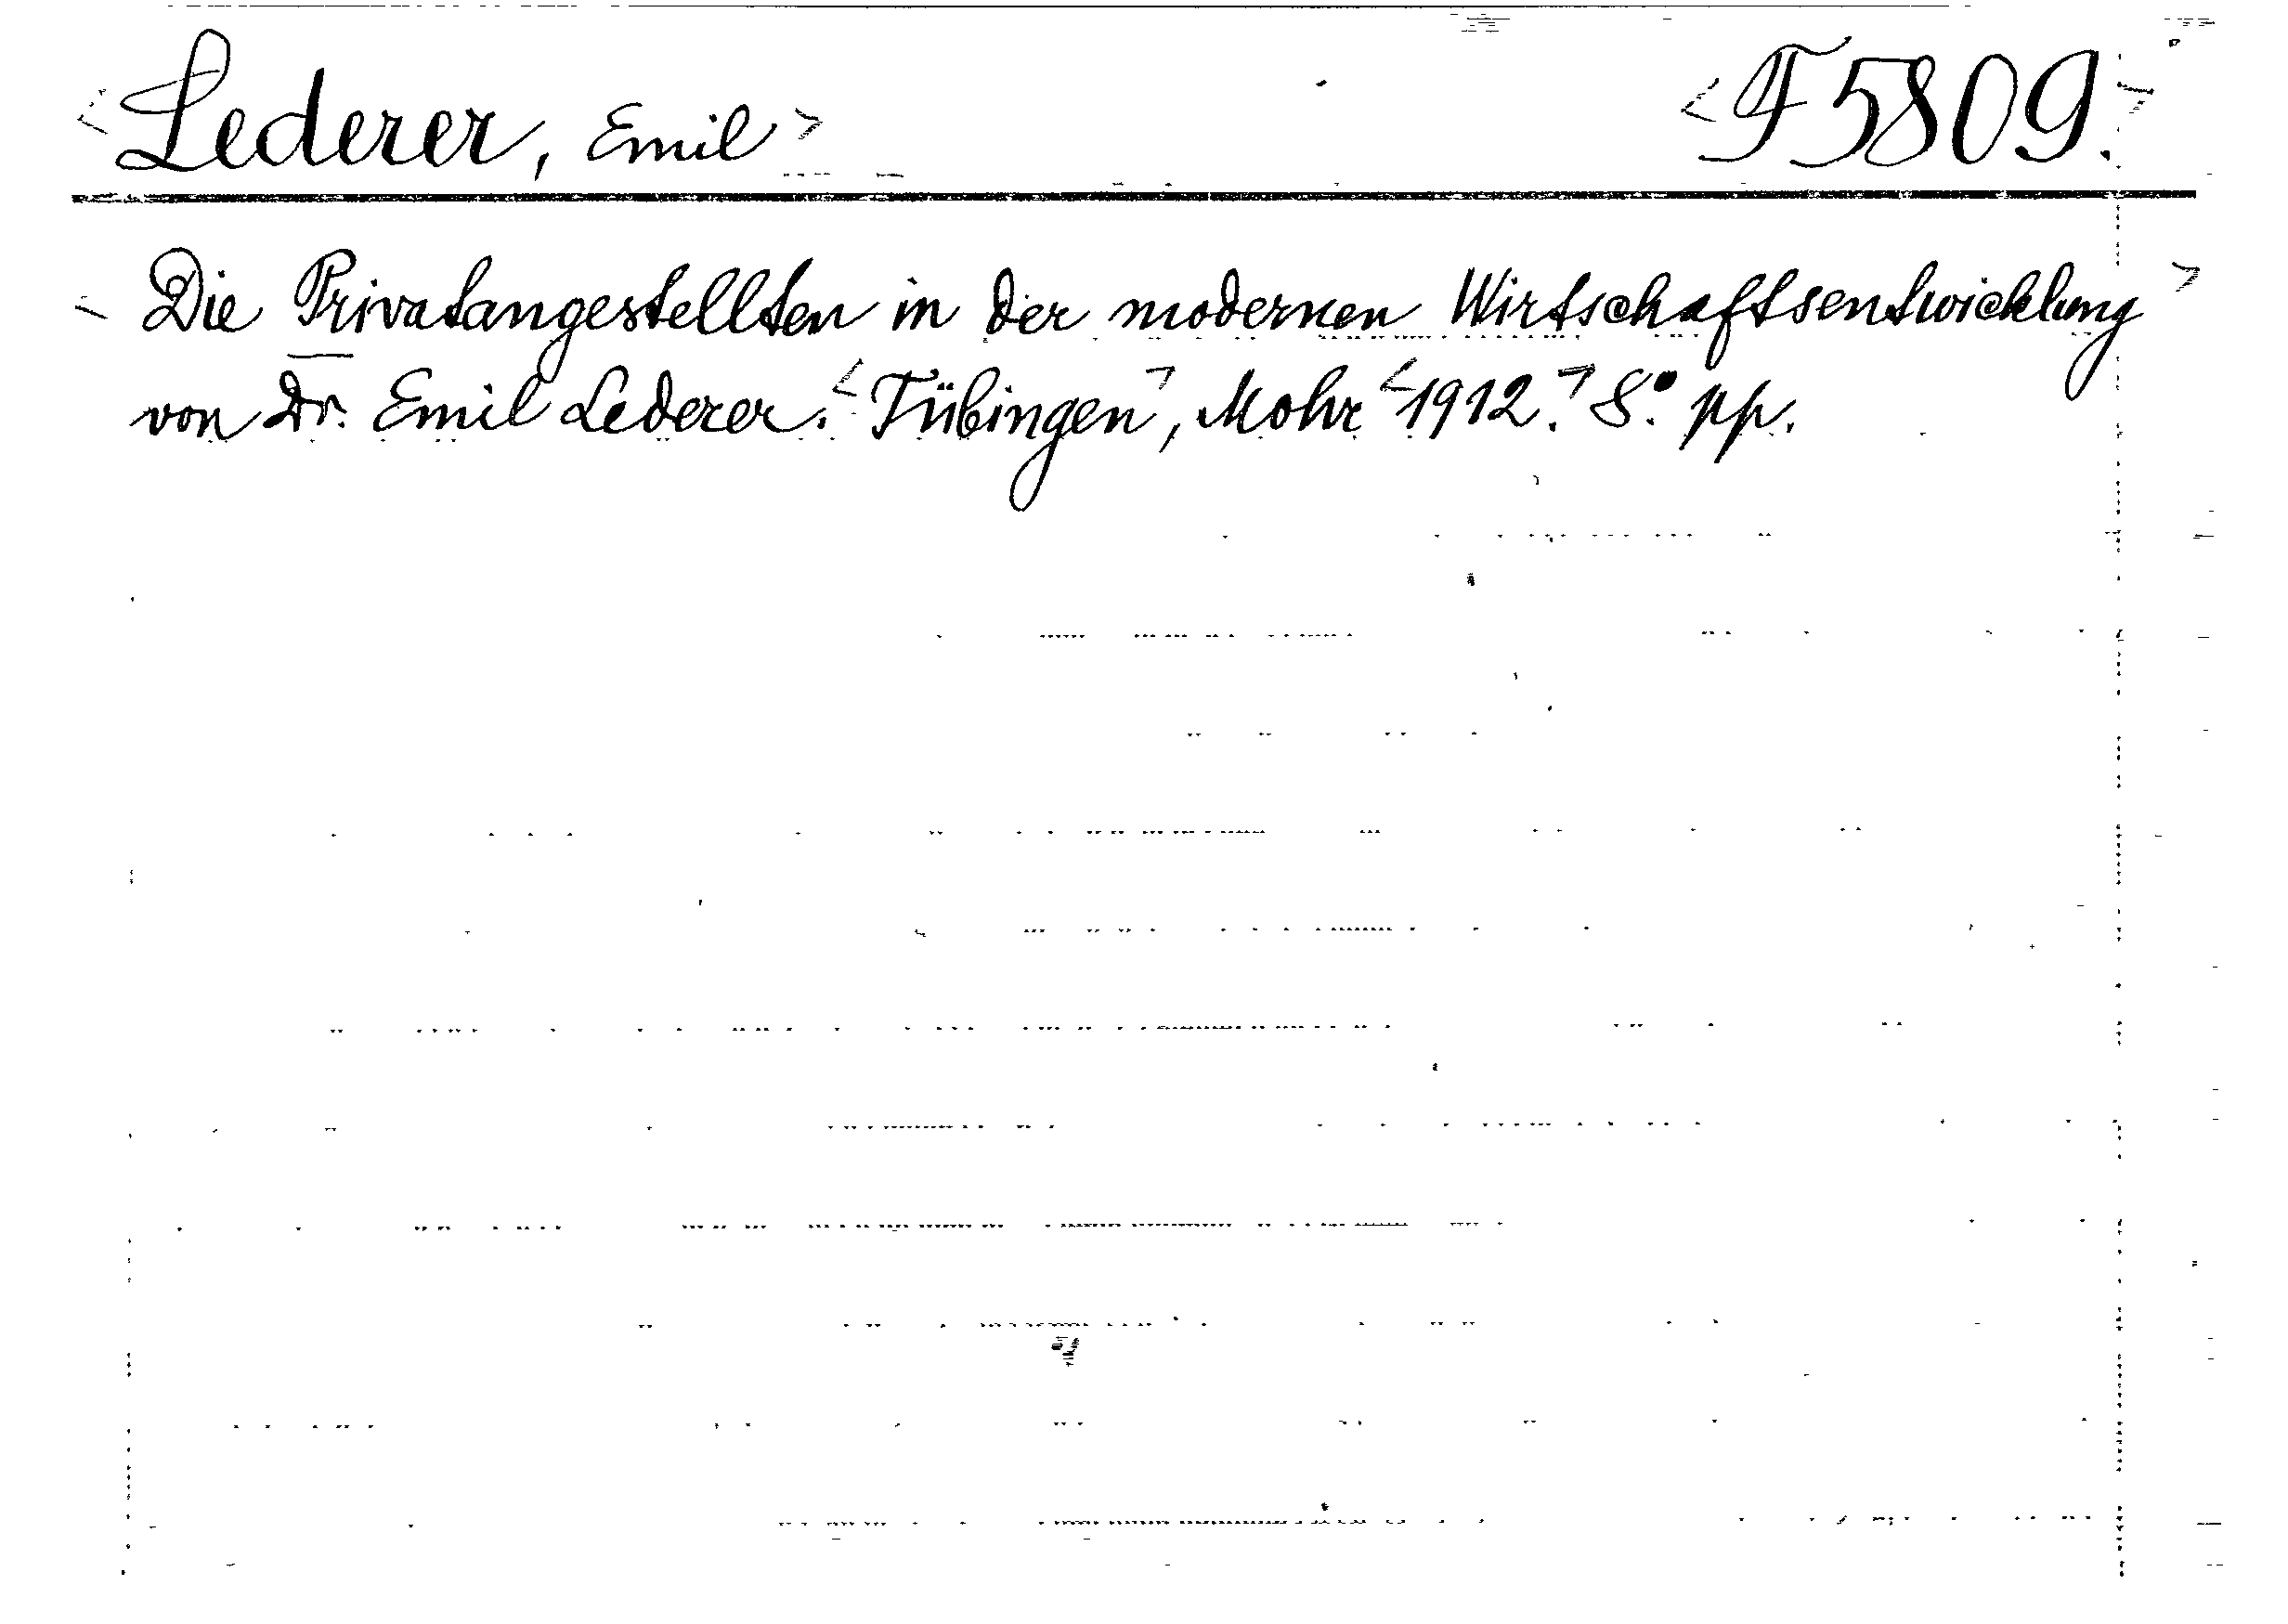 <Lederer, Emil> <F 5809.>
<Die Privatangestellten in der modernen Wirtschaftsentwicklung>
von Dr. Emil Lederer. <Tübingen>, Mohr <1912.> 8° pp.